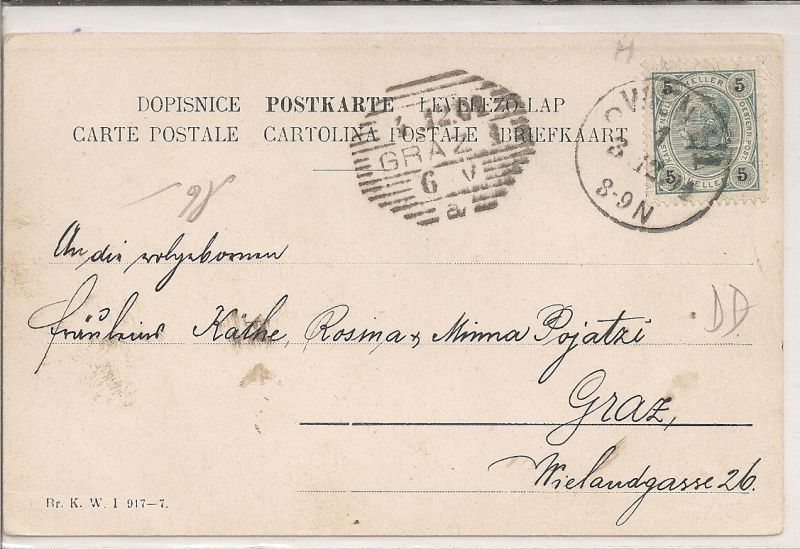 DOPISNICE POSTKARTE LEVELEZO-LAP
CARTE POSTALE CARTOLINA POSTALE BRIEFKAART
GRAZ 1
6 V
a
8-9N
5 HELLER 5
5 HELLER 5
16
An die wolgebornen
Fräuleins Käthe, Rosina & Minna Pojatzi
Graz,
Wielandgasse 26.
DD
Br. K. W. I 917-7.